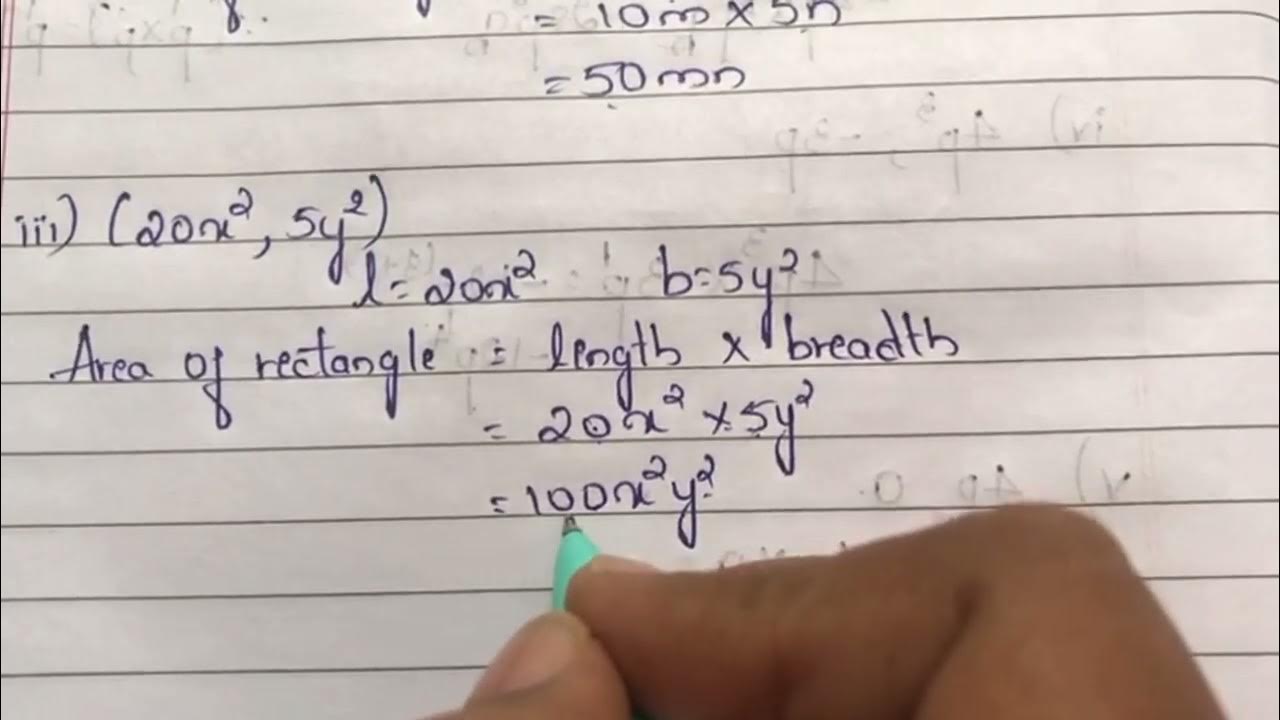 = 10m × 5n
= 50mn
iii) (20x², 5y²)
l = 20x² b = 5y²
Area of rectangle = length × breadth
= 20x² × 5y²
= 100x²y²